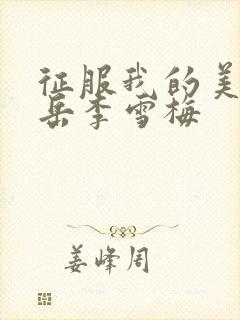 征服我的美
岳李雪梅
姜峰周